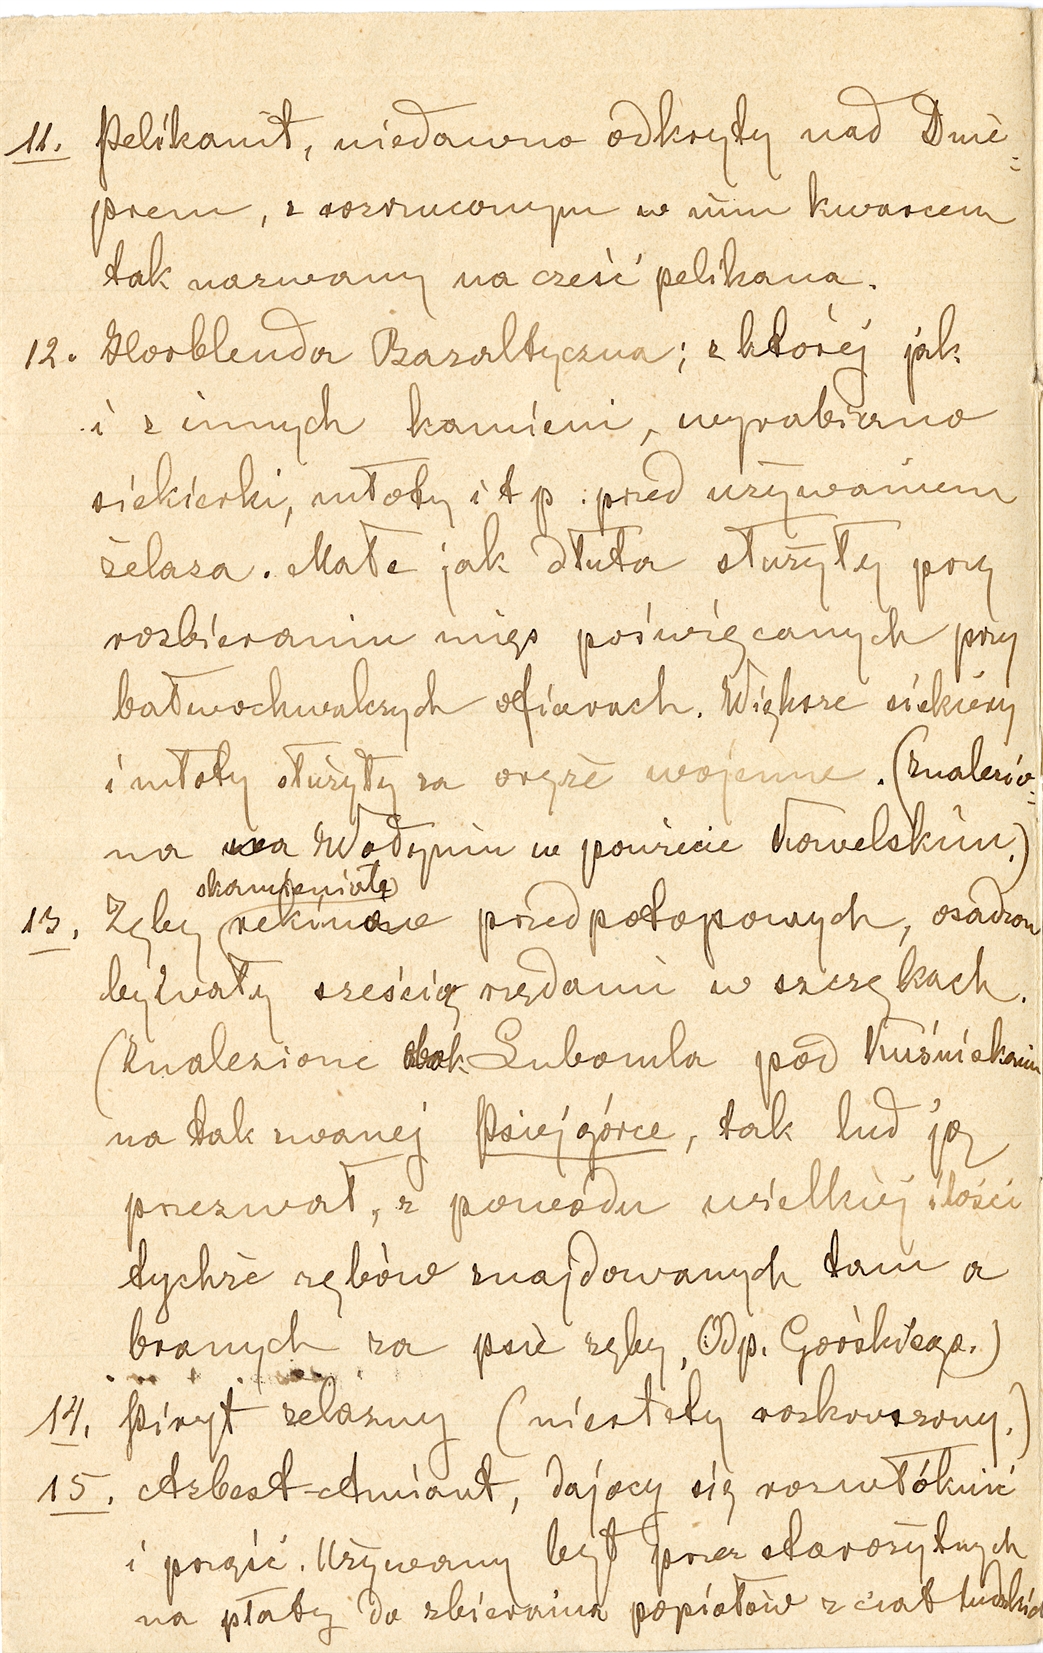 11. Pelikanit, niedawno odkryty nad Dnie=
prem, z rozrzuconym w nim kwarcem
tak nazwany na cześć pelikana.
12. Hornblenda Bazaltyczna; z którėj jak
i z innych kamieni, wyrabiano
siekierki, młoty i t p. przed używaniem
żelaza. Małe jak dłuta służyły przy
rozbieraniu mięs poświęcanych przy
bałwochwalczych ofiarach. Większe siekiery
i młoty służyły za oręże wojenne. (Znalezio=
na na Wołyniu w powiecie Kowelskim.)
skamieniałe
13. Zęby rekinów przedpotopowych, osadzon
bywały sześcią rzędami w szczękach.
(Znalezione obok Lubomla pod Kuśniskami
na tak zwanej Psiej górce, tak lud ją
przezwał, z powodu wielkiej ilości
tychże zębów znajdowanych tam a
branych za psie zęby, Odp. Górskiego.)
14. Piryt żelazny (niestety rozkruszony.)
15. Azbest-Amiant, dający się rozwłóknić
i prząść. Używany był przez starożytnych
na płaty do zbierania popiołów z ciał ludzkich